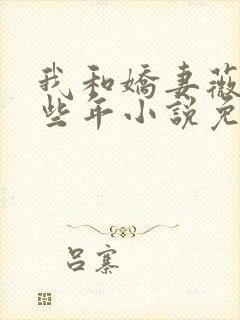 我和嬌妻薇
些年小說免
呂寨